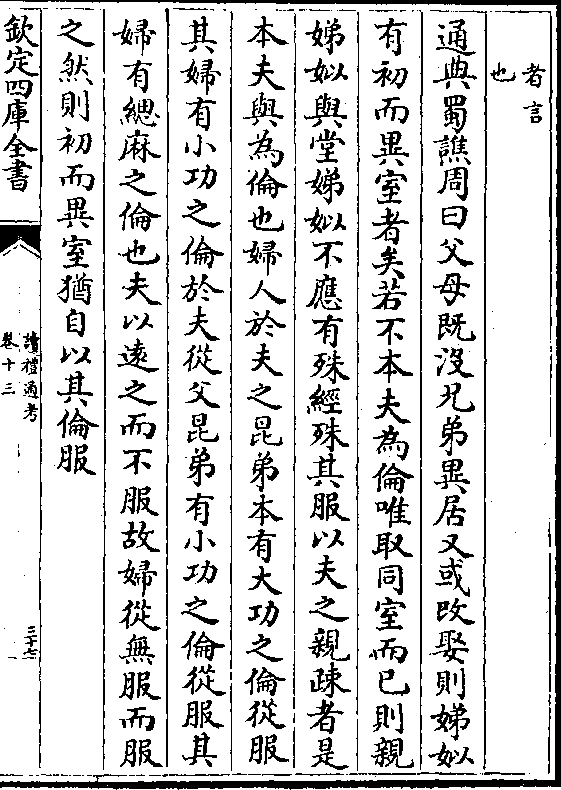 者言
也
通典蜀譙周曰父母既沒兄弟異居又或改娶則娣姒
有初而異室者矣若不本夫為倫唯取同室而已則親
娣姒與堂娣姒不應有殊經殊其服以夫之親疎者是
本夫與為倫也婦人於夫之昆弟本有大功之倫從服
其婦有小功之倫於夫從父昆弟有小功之倫從服其
婦有緦麻之倫也夫以遠之而不服故婦從無服而服
之然則初而異室猶自以其倫服
欽定四庫全書
讀禮通考
卷十三
三十七